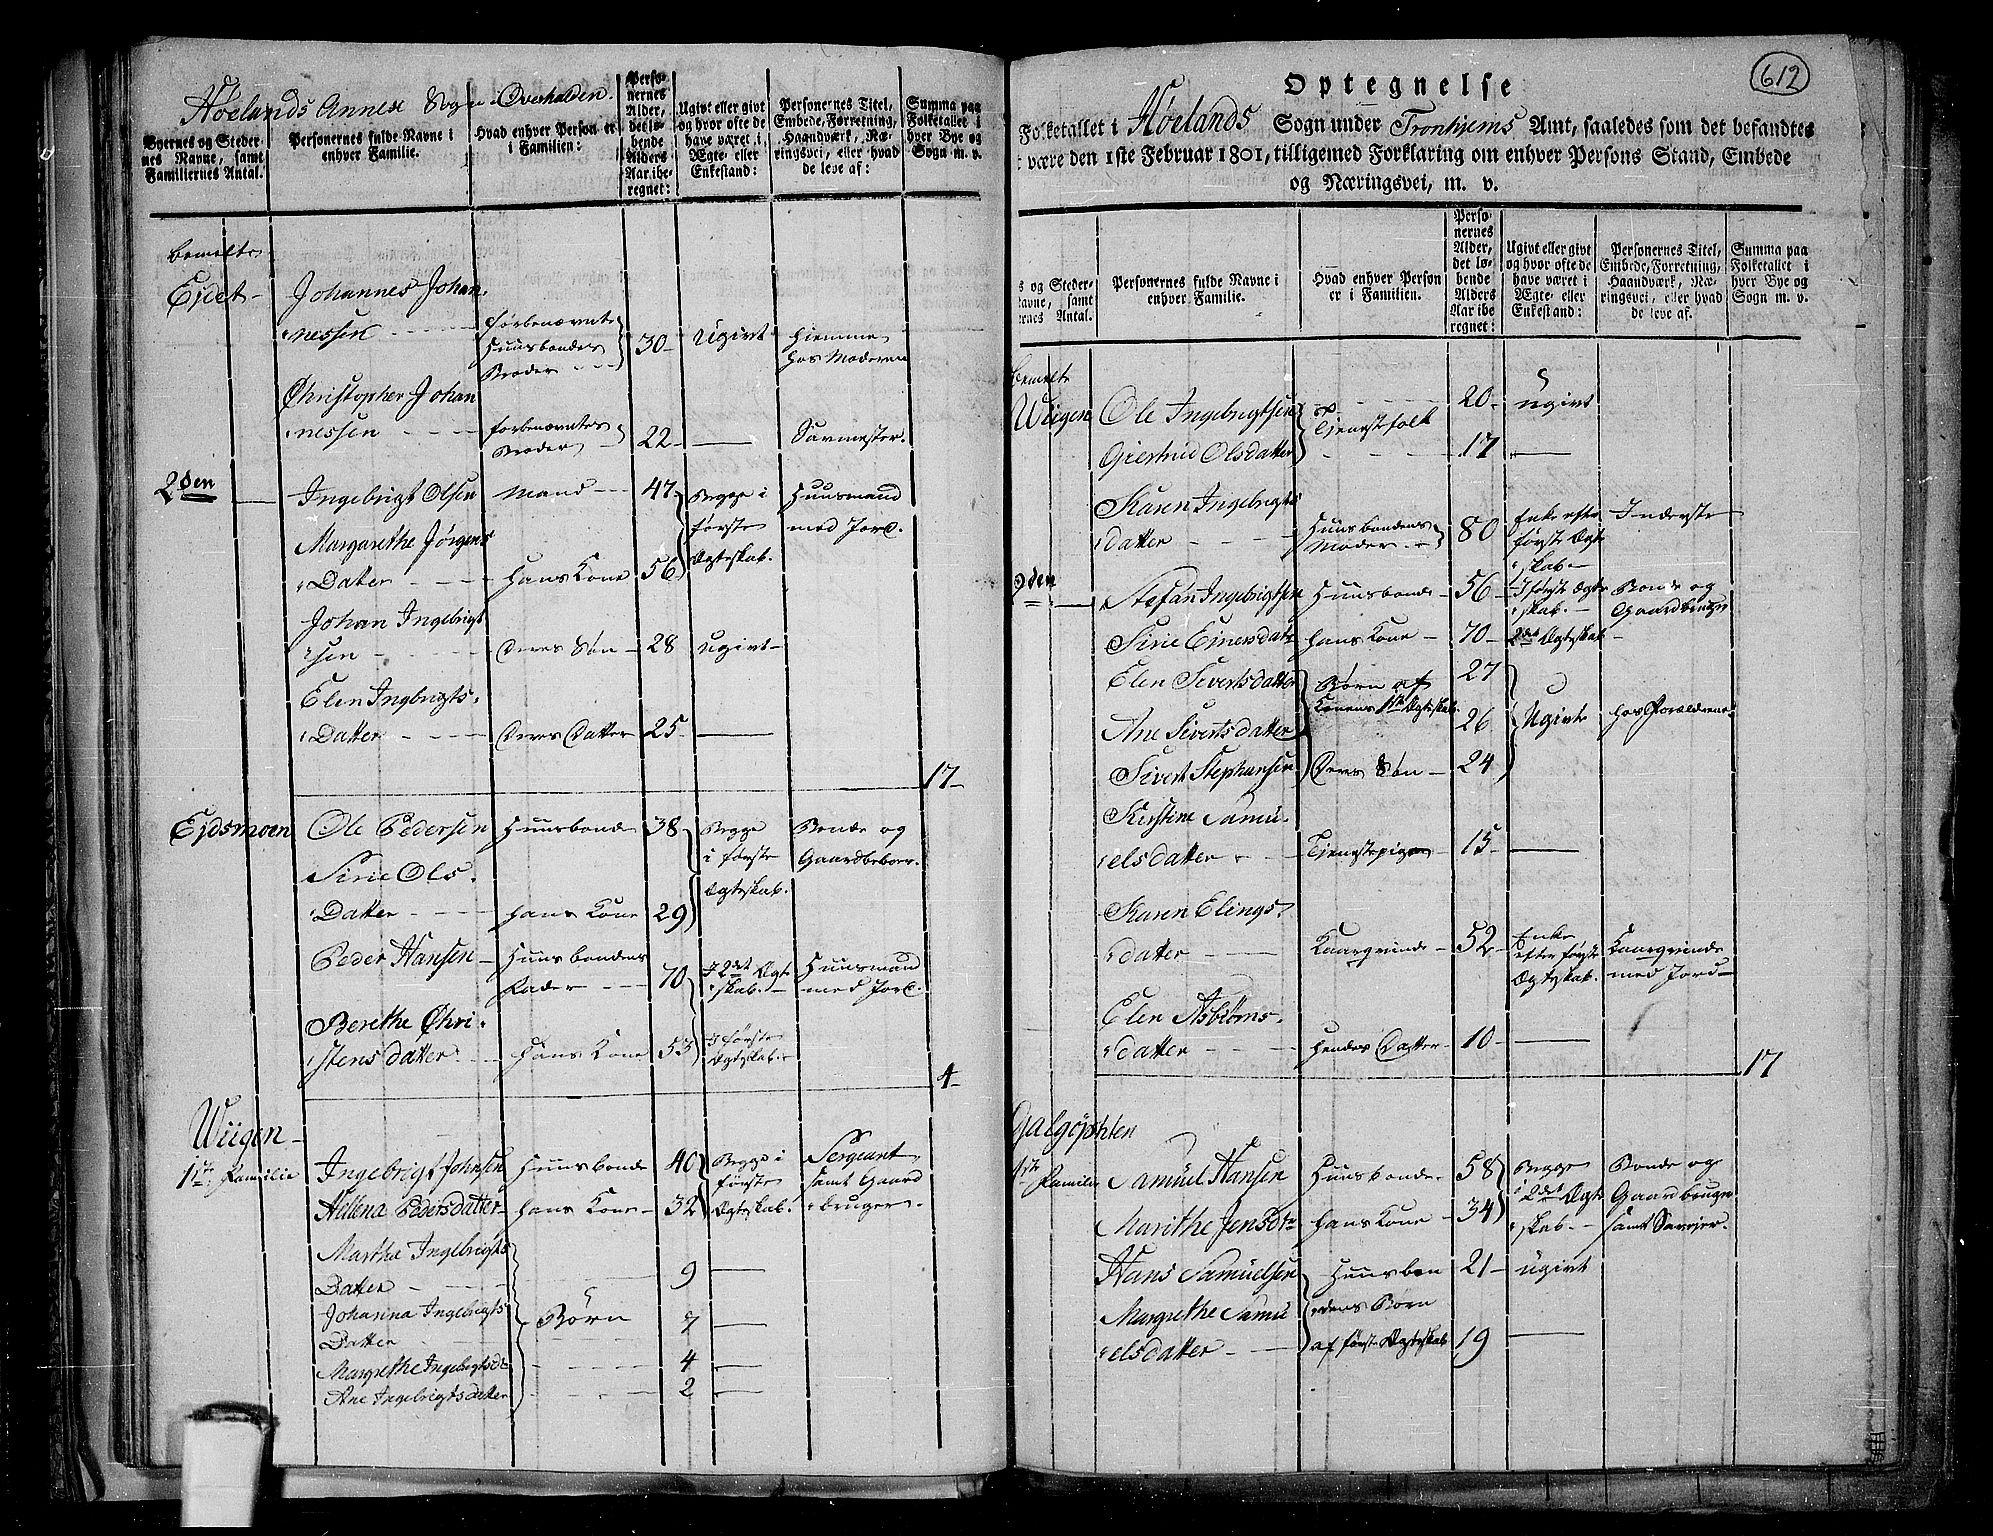 Høelands Annex Sogn i Overhalden.
Byernes og Stedernes Navne, samt Familiernes Antal.
Personernes fulde Navne i enhver Familie.
Hvad enhver Person er i Familien:
Personernes Alder, det løbende Alders Aar iberegnet:
Ugivt eller givt og hvor ofte de have været i Ægte- eller Enkestand:
Personernes Titel, Embede, Forretning, Haandværk, Næringsvei, eller hvad de leve af:
Summa paa Folketallet i hver Bye og Sogn m. v.
bemelte
Ejdet - Johannes Johan
nessen - - - forbenævnte Huusbondes Broder - - - 30 - Ugivt hiemme hos Moderen
Christopher Johan
nessen - - - forbenævntes Broder - 22 - —
2den — Ingebrigt Olsen Mand - - - 47 Begge i første Ægteskab. Huusmand med Jord.
Margarethe Jørgens
Dater - - - hans Kone 56
Johan Ingebrigt
sen - - - Deres Søn - 28 ugivt -
Elen Ingbrigts
Datter - - - Deres Datter 25 - —
17 -
Ejdsmoen Ole Pedersen Huusbonde 38 Begge i første Ægteskab. Bonde og Gaardbeboer.
Sirie Ols
Datter - - - hans Kone 29
Peder Hansen - Huusbondens Fader - - - 70 I 2det Ægteskab. - Huusmand med Jord.
Berethe Chri
stensdatter - - hans Kone 53 I første Ægteskab. -
4 -
Wiigen -
1ste Familie Ingebrigt Johnsen Huusbonde 40 Begge i første Ægteskab. Sergeant samt Gaardbruger.
Hellena Pedersdatter hans Kone - 32
Marthe Ingebrigts
Datter - - - 9 —
Johanna Ingebrigts Børn
Datter - 7 —
Margrethe Ingebrigtsdr - - - 4 —
Ane Ingebrigtsdatter - - - 2 —
612
Optegnelse
Folketallet i Høelands Sogn under Tronhjems Amt, saaledes som det befandtes
t være den 1ste Februar 1801, tilligemed Forklaring om enhver Persons Stand, Embede
og Næringsvei, m. v.
s og Steder- Navne, samt ernes Antal.
Personernes fulde Navne i enhver Familie.
Hvad enhver Person er i Familien.
Personernes Alder, det løbende Alders Aar iberegnet:
Ugivt eller givt og hvor ofte de have været i Ægte- eller Enkestand:
Personernes Titel, Embede, Forretning, Haandværk, Næringsvei, eller hvad de leve af.
Summa paa Folketallet i hver Bye og Sogn m. v.
bemelte
Wiigen Ole Ingebrigtsen Tjenestfolk 20 - ugivt
Giertrud Olsdatter - - - 17 —
Karen Ingebrigts
datter - - - Huusbondens Moder - - 80 Enke efter første Ægteskab - Inderste
2den — Stefan Ingebrigtsen Huusbonde - 56 - I først Ægteskab. - Bonde og Gaardbruger
Sirie Einersdatr hans Kone - 70 - 2det Ægteskab -
Elen Sivertsdatter Børn af Konens 1ste Ægteskab. 27 Ugivte hos Forældrene.
Ane Sivertsdatter 26
Sivert Stephansen Deres Søn - 24
Kerstine Samu
elsdatter - - Tjenestpige 15 - —
Karen Elings
datter - - - Kaargvinde - 52 - Enke efter første Ægteskab. Kaargvinde med Jord -
Elen Asbiøms
datter - - - hendes Datter - 10 - —
17
Galgøphten
1ste Familie Samuel Hansen Huusbonde - 58 Begge i 2det Ægteskab. - Bonde og Gaardbruger samt Savejer.
Marithe Jensdtr hans Kone - 34
Hans Samuelsen Huusbon 21 - ugivt
Margrethe Samu dens Børn
elsdatter - - af første Ægteskab 19 —